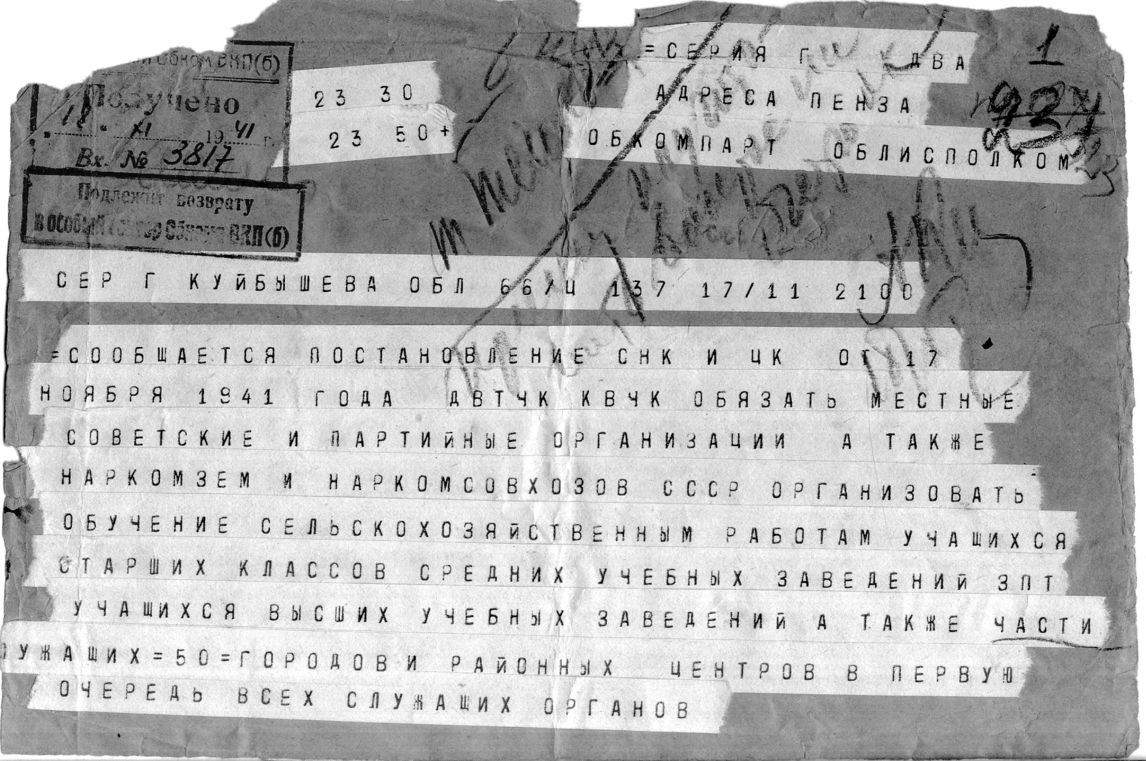 Обком ВКП(б)
Получено
18 " XI 1941 г.
Вх. № 3817
Подлежит возврату
в особый сектор Обкома ВКП(б)
23 30
23 50+
=СЕРИЯ Г ДВА
АДРЕСА ПЕНЗА
ОБКОМПАРТ ОБЛИСПОЛКОМ
1
СЕР Г КУЙБЫШЕВА ОБЛ 66/Ц 137 17/11 2100
=СООБЩАЕТСЯ ПОСТАНОВЛЕНИЕ СНК И ЦК ОТ 17
НОЯБРЯ 1941 ГОДА ДВТЧК КВЧК ОБЯЗАТЬ МЕСТНЫЕ
СОВЕТСКИЕ И ПАРТИЙНЫЕ ОРГАНИЗАЦИИ А ТАКЖЕ
НАРКОМЗЕМ И НАРКОМСОВХОЗОВ СССР ОРГАНИЗОВАТЬ
ОБУЧЕНИЕ СЕЛЬСКОХОЗЯЙСТВЕННЫМ РАБОТАМ УЧАЩИХСЯ
СТАРШИХ КЛАССОВ СРЕДНИХ УЧЕБНЫХ ЗАВЕДЕНИЙ ЗПТ
УЧАЩИХСЯ ВЫСШИХ УЧЕБНЫХ ЗАВЕДЕНИЙ А ТАКЖЕ ЧАСТИ
УЖАЩИХ=50=ГОРОДОВ И РАЙОННЫХ ЦЕНТРОВ В ПЕРВУЮ
ОЧЕРЕДЬ ВСЕХ СЛУЖАЩИХ ОРГАНОВ